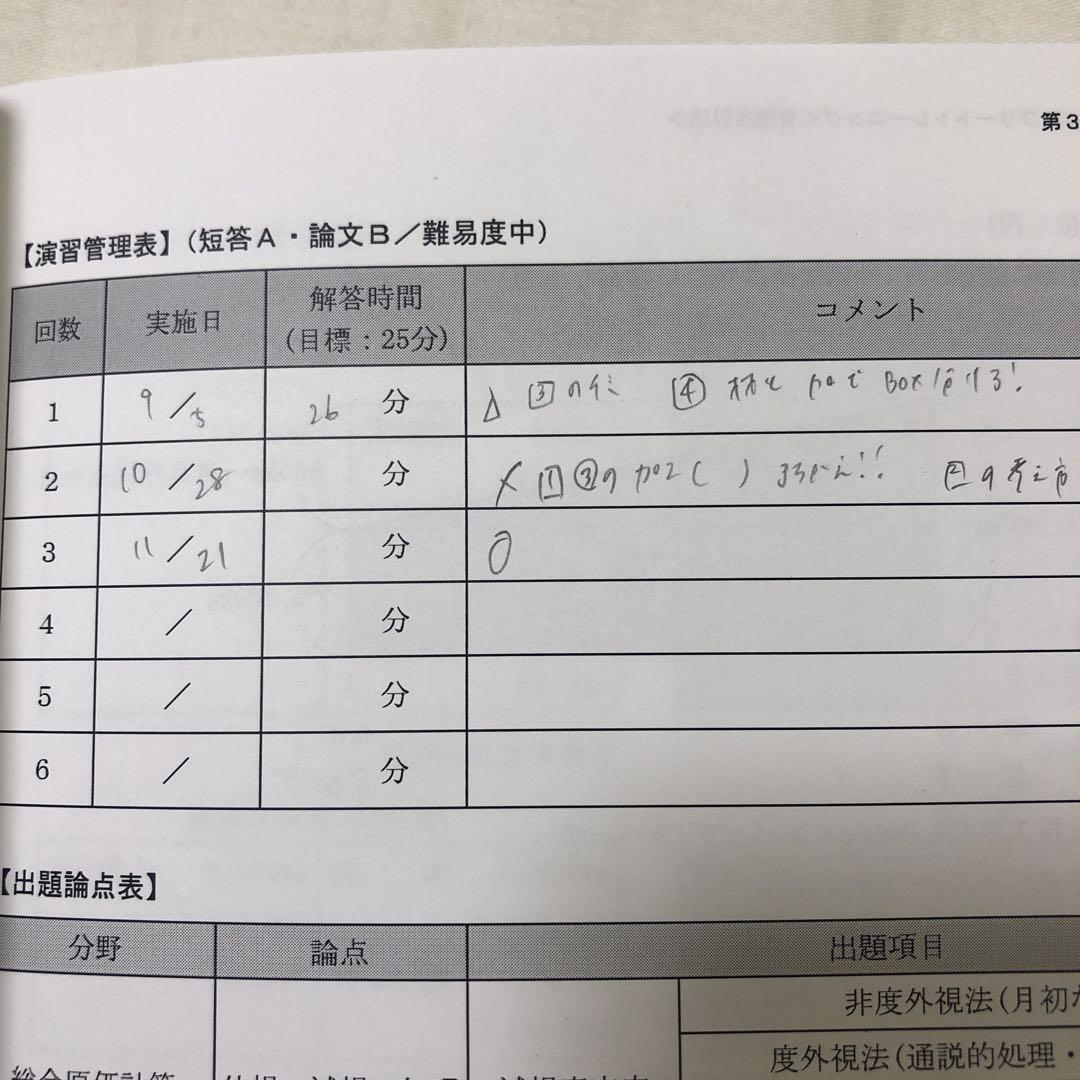 第3
【演習管理表】(短答A・論文B/難易度中)
回数 実施日 解答時間(目標:25分) コメント
1 9/5 26 分 △ ③の仕 ④ 材と加で BOX 分ける!
2 10/28 分 × ① ③の加工( ) !! の考え方
3 11/21 分 ○
4 / 分
5 / 分
6 / 分
【出題論点表】
分野 論点 出題項目
非度外視法(月初
度外視法(通説的処理・
総合原価計算